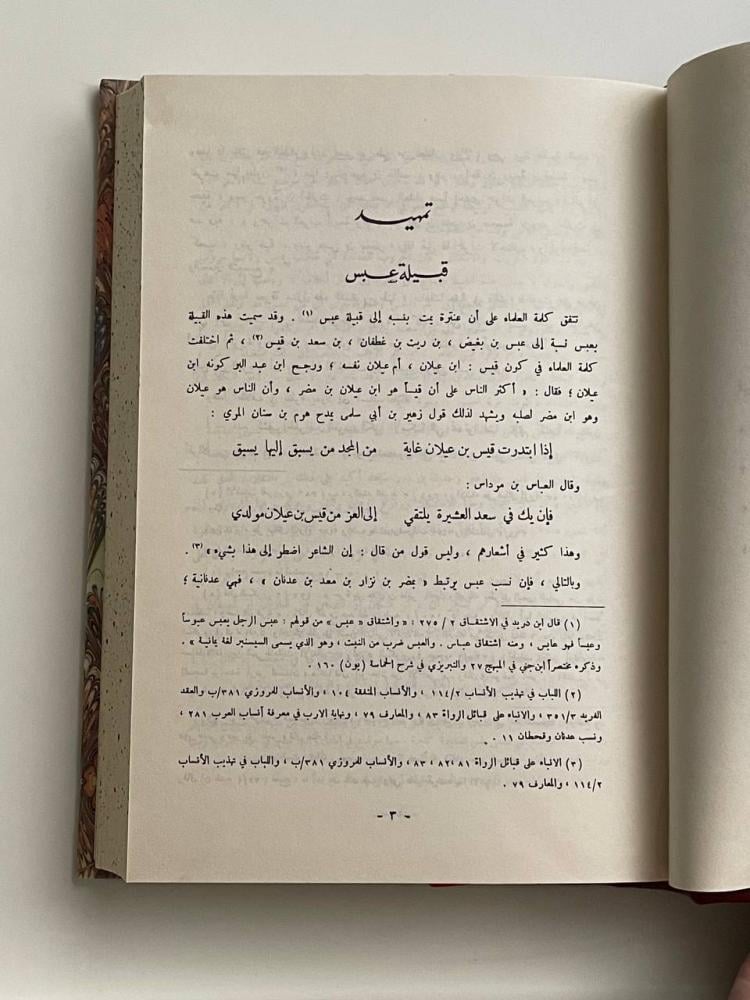 تمهيد
قبيلة عبس
تتفق كلمة العلماء على أن عنترة يمت بنسبه إلى قبيلة عبس (١) . وقد سميت هذه القبيلة
بعبس نسبة إلى عبس بن بغيض ، بن ريث بن غطفان ، بن سعد بن قيس (٢) ، ثم اختلفت
كلمة العلماء في كون قيس : ابن عيلان ، أم عيلان نفسه ؛ ورجح ابن عبد البر كونه ابن
عيلان ؛ فقال : « أكثر الناس على أن قيساً هو ابن عيلان بن مضر ، وأن الناس هو عيلان
وهو ابن مضر لصلبه ويشهد لذلك قول زهير بن أبي سلمى يمدح هرم بن سنان المري :
إذا ابتدرت قيس بن عيلان غاية من المجد من يسبق إليها يسبق
وقال العباس بن مرداس :
فإن يك في سعد العشيرة يلتقي إلى العز من قيس بن عيلان مولدي
وهذا كثير في أشعارهم ، وليس قول من قال : إن الشاعر اضطر إلى هذا بشيء » (٣) .
وبالتالي ، فإن نسب عبس يرتبط « بمضر بن نزار بن معد بن عدنان » ، فهي عدنانية ؛
(١) قال ابن دريد في الاشتقاق ٢ / ٢٧٥ : « واشتقاق « عبس » من قولهم : عبس الرجل يعبس عبوساً
وعبساً فهو عابس ، ومنه اشتقاق عباس . والعبس ضرب من النبت ، وهو الذي يسمى السيسنبر لغة يمانية » .
وذكره مختصراً ابن جني في المبهج ٢٧ والتبريزي في شرح الحماسة (بون) ١٦٠ .
(٢) اللباب في تهذيب الأنساب ١١٤/٢ ، والأنساب المتفقة ١٠٤ ، والأنساب للمروزي ٣٨١/ب والعقد
الفريد ٣٥١/٣ ، والانباه على قبائل الرواة ٨٣ ، والمعارف ٧٩ ، ونهاية الارب في معرفة أنساب العرب ٢٨١ ،
ونسب عدنان وقحطان ١١ .
(٣) الانباه على قبائل الرواة ٨١ ، ٨٢ ، ٨٣ ، والأنساب للمروزي ٣٨١/ب ، واللباب في تهذيب الأنساب
١١٤/٢ ، والمعارف ٧٩ .
- ٣ -